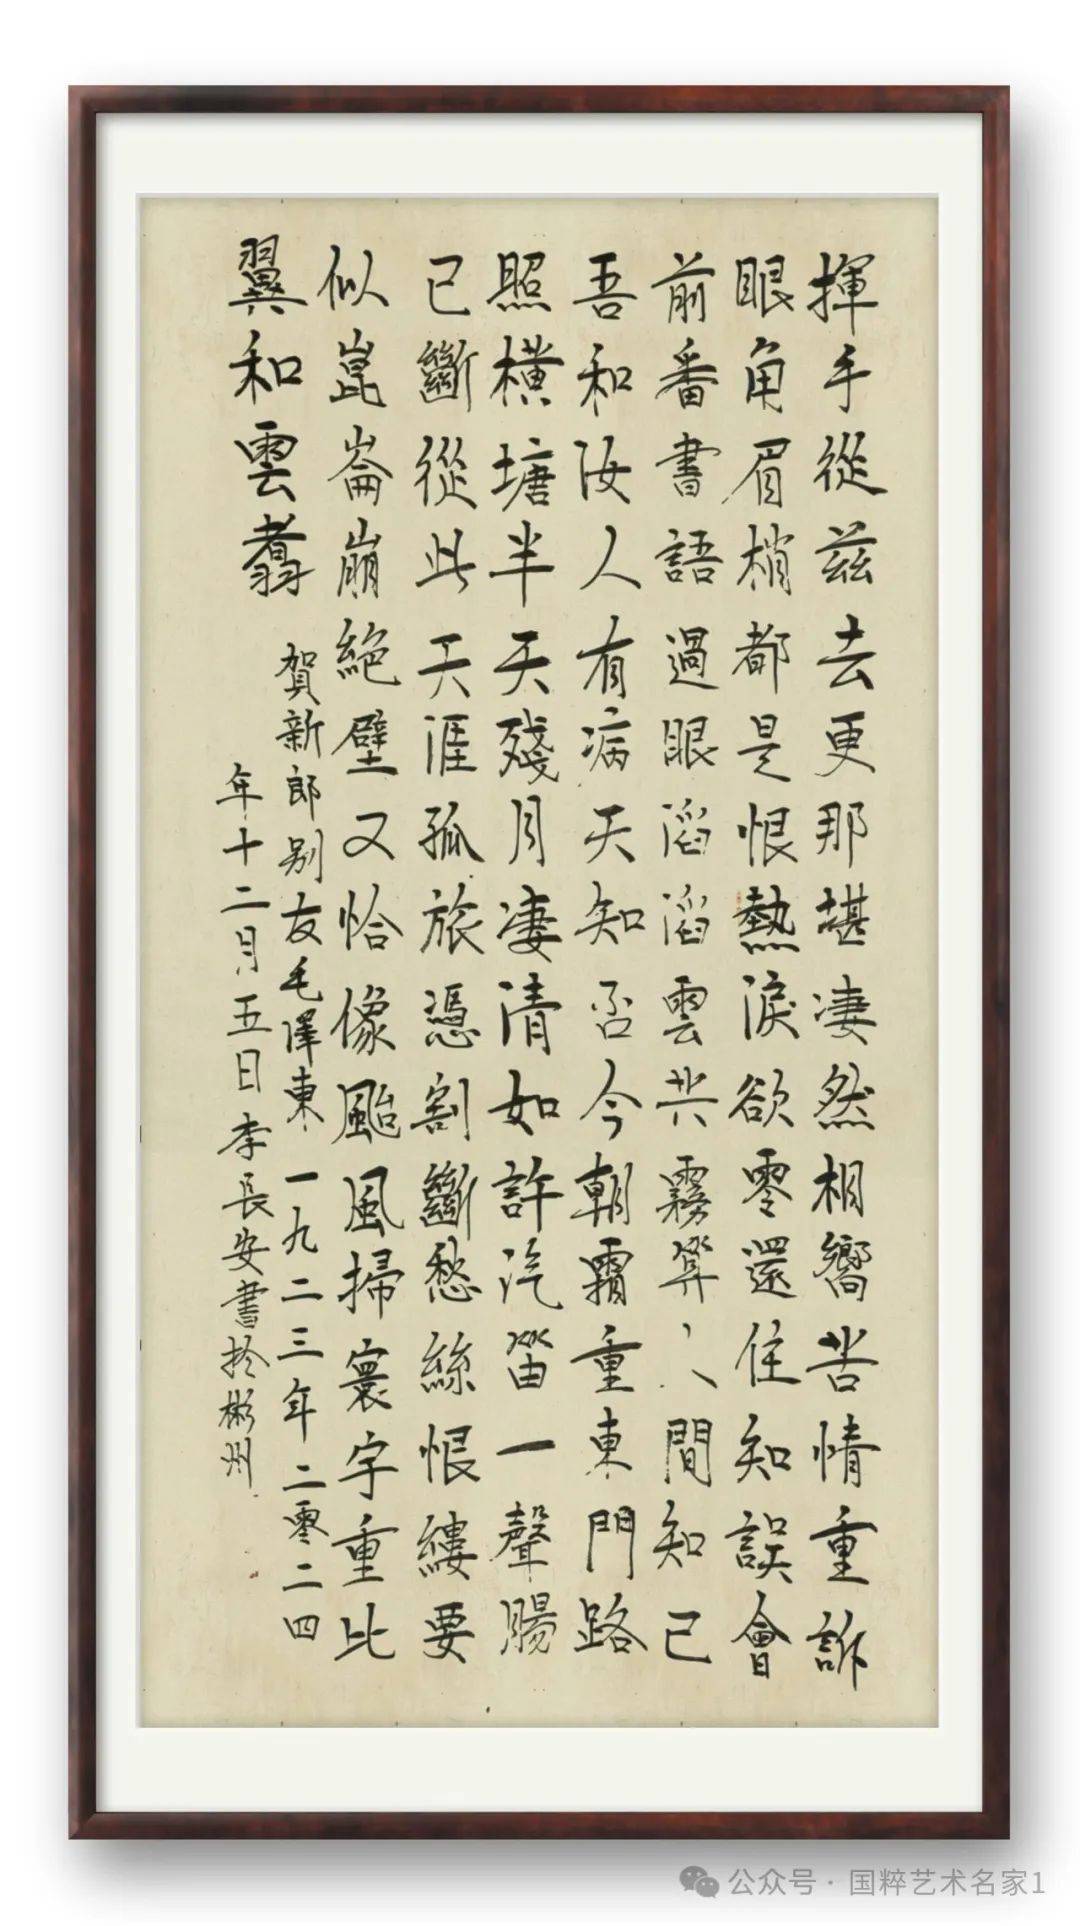 揮手從茲去更那堪凄然相嚮苦情重訴
眼角眉梢都是恨熱淚欲零還住知誤會
前番書語過眼滔滔雲共霧算人間知己
吾和汝人有病天知否今朝霜重東門路
照橫塘半天殘月凄清如許汽笛一聲腸
已斷從此天涯孤旅憑割斷愁絲恨縷要
似崑崙崩絕壁又恰像颱風掃寰宇重比
翼和雲翥
賀新郎别友毛澤東一九二三年二零二四
年十二月五日李長安書於彬州
公众号·国粹艺术名家1